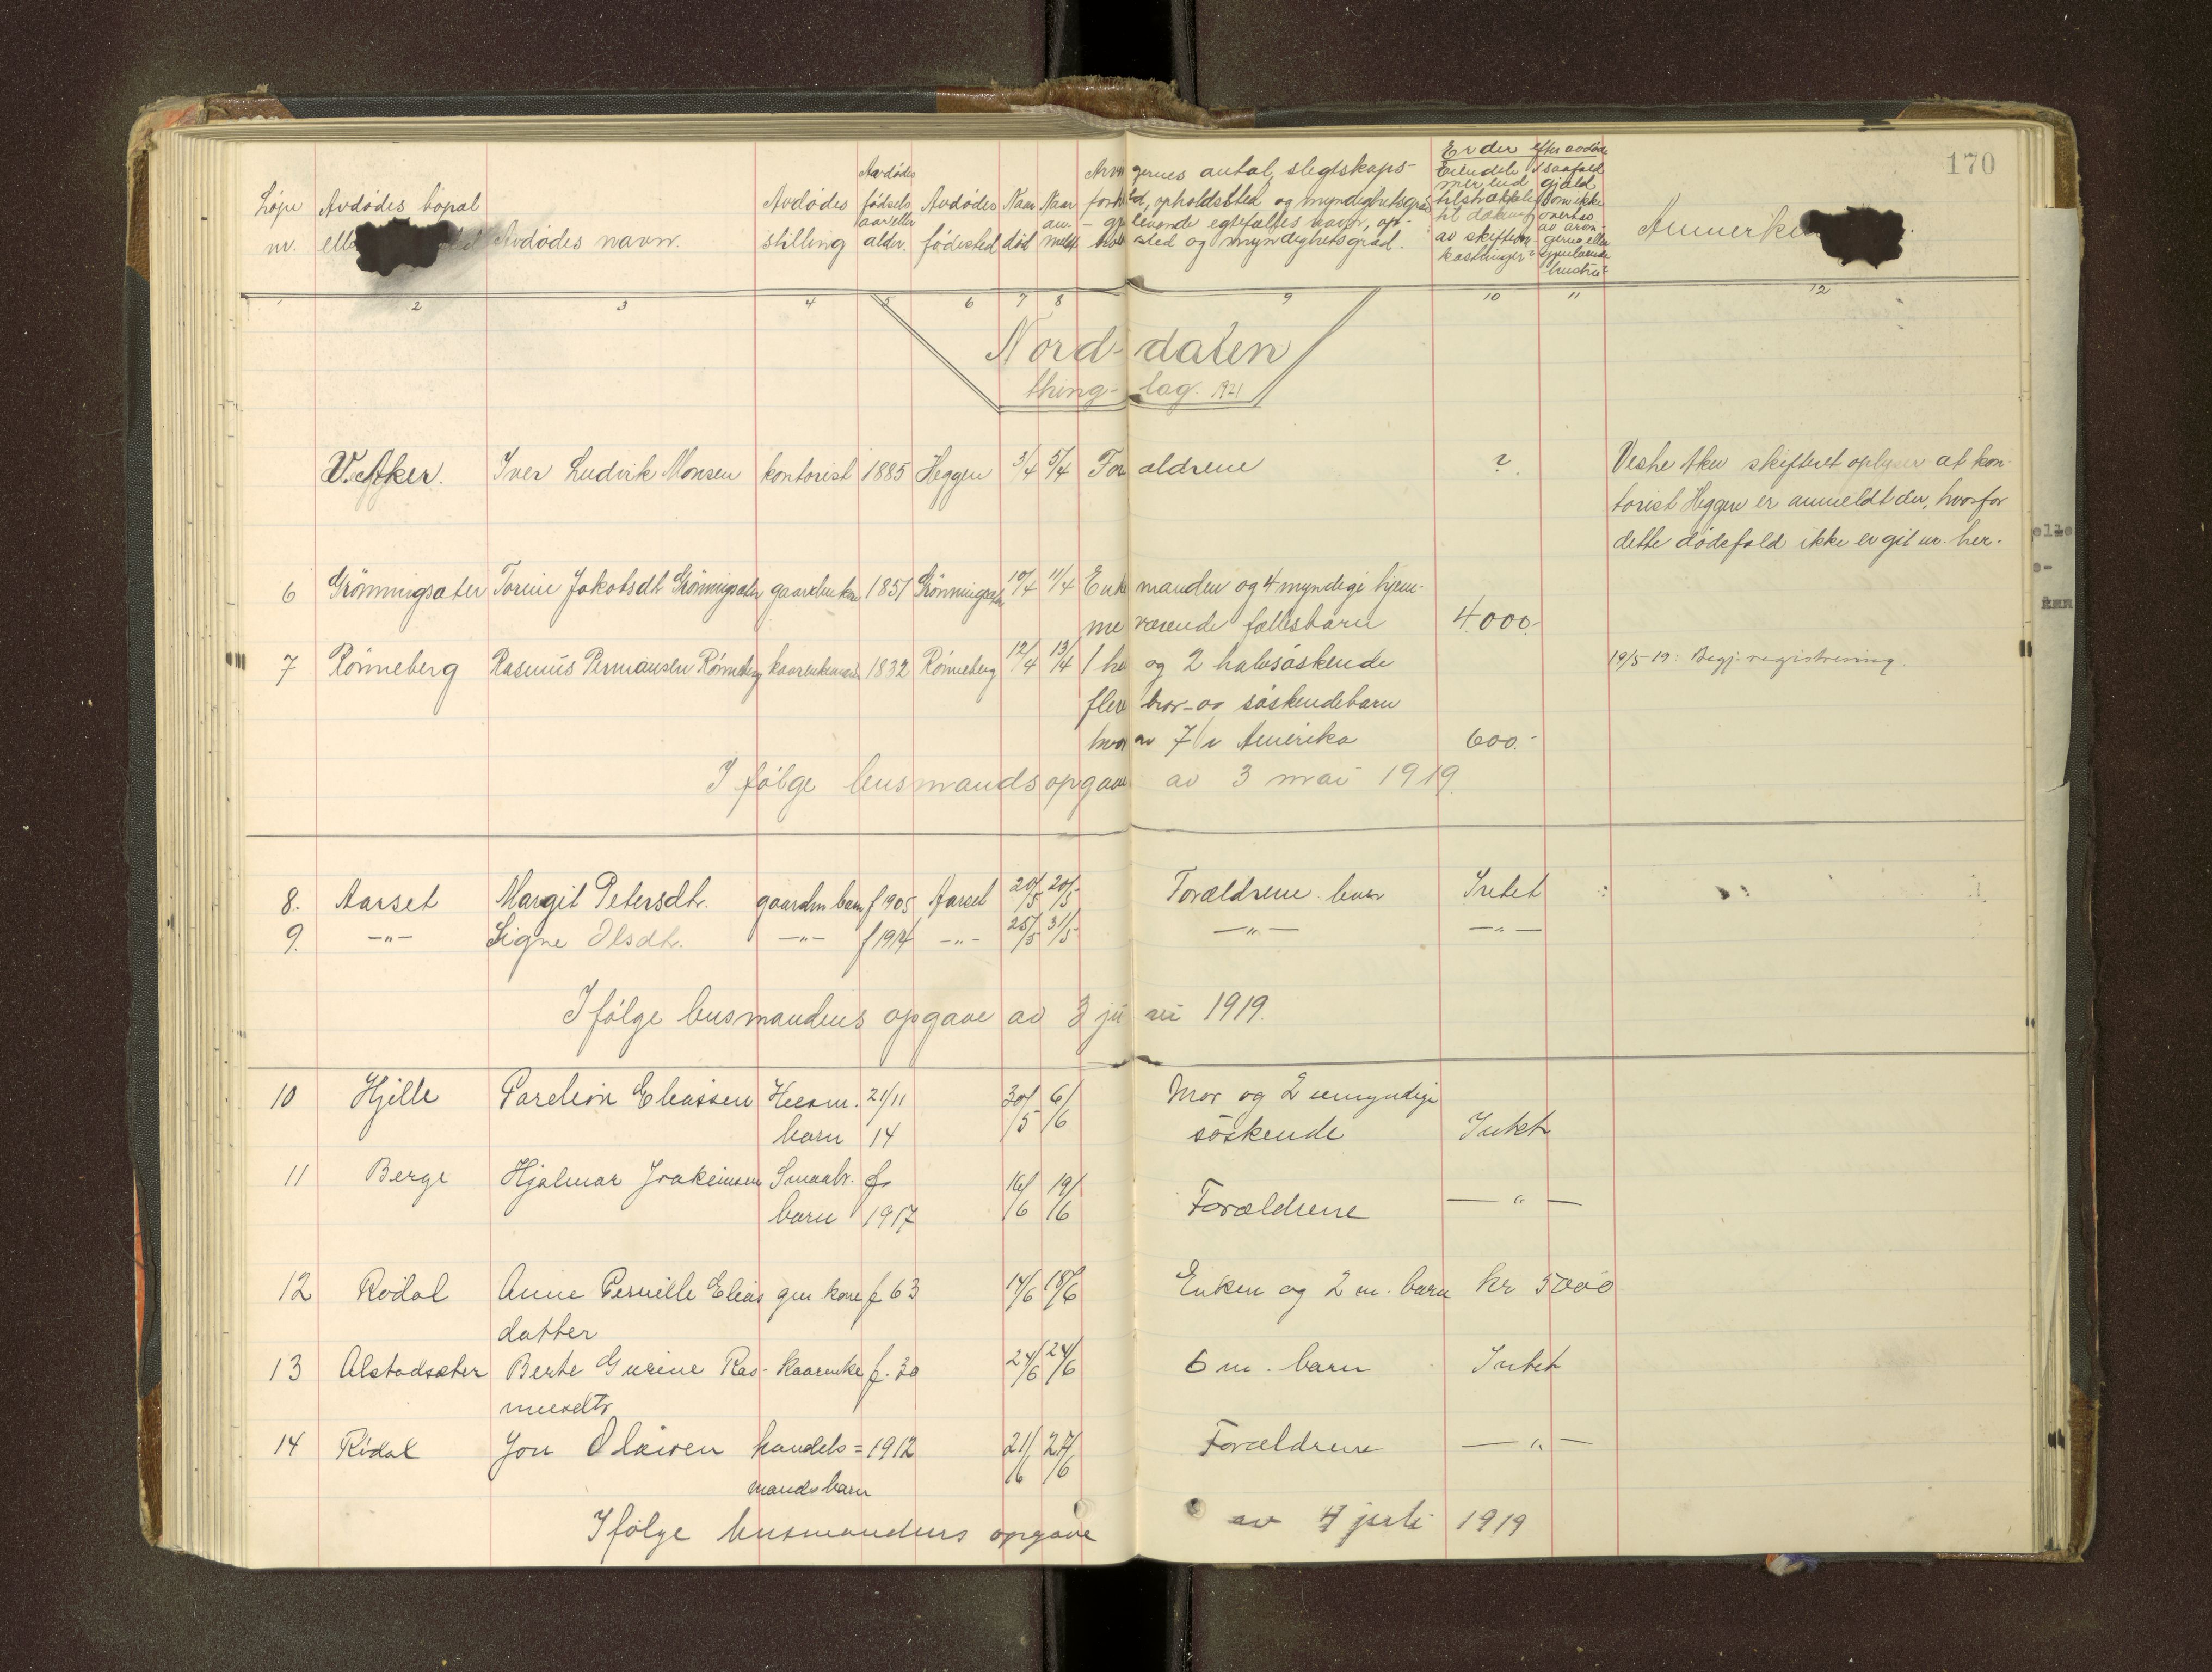 170
Løpe nr.
Avdødes bopæl
Avdødes navn.
Avdødes stilling
Avdødes fødselsaar eller alder.
Avdødes fødested
Naar død
Naar anmeldt
gernes antal, slegtskaps-
opholdssted og myndighetsgrad
levende egtefælles navn, op-
sted og myndighetsgrad.
Er der efter avdøde
Eiendele mer end tilstrækkelig til dækning av skifteomkostninger?
I saafald gjæld som ikke overtas av arvingerne eller gjenlevende hustru?
1 2 3 4 5 6 7 8 9 10 11 12
Nord-dalen
thing-lag. 1921
V. Aker. Iver Ludvik Monsen kontorist 1885 Heggen 3/4 5/4 Forældrene ? Vestre Aker skifteret oplyser at kon-
torist Heggen er anmeldt der, hvorfor
dette dødsfald ikke er git nr. her.
6 Grönningsæter Torine Jakobsdt Grönningsæter gaardmkone 1851 Grönningsæter 10/4 11/4 Enkemanden og 4 myndige hjem-
meværende fællesbarn 4000.-
7 Rönneberg Rasmus Rönneberg 1832 Rönneberg 12/4 13/4 1 hel og 2 halvsøskende 19/5-19: Begj. registrering.
flere bror- og søskendebarn
hvorav 7 i Amerika 600.-
I følge lensmands opgave av 3 mai 1919
8. Aarset Margit Petersdtr. gaardm barn f 1905 Aarset 20/5 20/5 Forældrene lever Intet
9. -"- Signe Olsdtr. -"- f 1914 -"- 25/5 31/5 -"- -"-
I følge lensmandens opgave av 3 juni 1919.
10 Hjelle Parelion Eliassen Husm. 21/11 30/5 6/6 Mor og 2 umyndige
barn 14 søskende Intet
11 Berge Hjalmar Joakimsen Smaabr. f. 16/6 19/6 Forældrene -"-
barn 1917
12 Rødal Anne Pernille Elias gm kone f 63 14/6 18/6 Enken og 2 m. barn kr 5000
datter
13 Alstadsæter Berte Gurine Ras- Kaarenke f. 30 24/6 24/6 6 m. barn Intet
musdtr
14 Rødal Jon Olaisen handels= 1912 21/6 27/6 Forældrene -"-
mandsbarn
I følge lensmandens opgave av 4 juli 1919